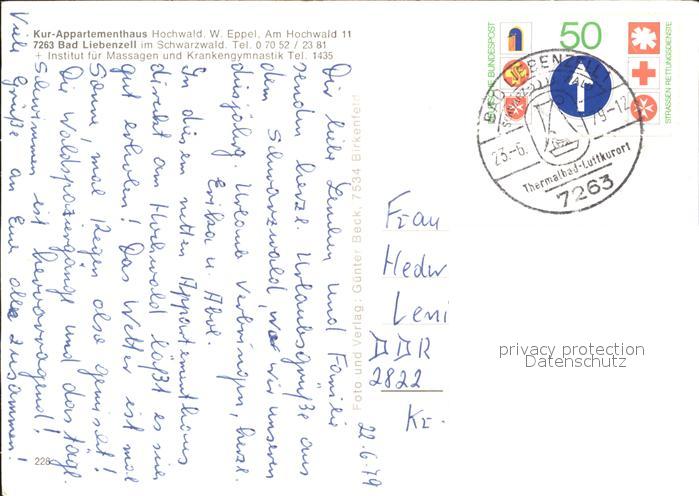 Kur-Appartementhaus Hochwald. W. Eppel, Am Hochwald 11
7263 Bad Liebenzell im Schwarzwald. Tel. 0 70 52 / 23 81
+ Institut für Massagen und Krankengymnastik Tel. 1435
Ihr liebe und Familie
senden herzl. Urlaubsgrüße aus
dem Schwarzwald, wo wir unseren
diesjährig. Urlaub verbringen, herzl.
Erika u.
In diesem netten Appartementhaus
direkt am Hochwald läßt es sich
gut erholen! Das Wetter ist mal
Sonne, mal Regen also gemischt!
Die Waldspaziergänge und das tägl.
Schwimmen ist hervorragend!
Viele Grüße an Euch alle zusammen!
228
Foto und Verlag: Günter Beck, 7534 Birkenfeld
22.6.79
Frau
Hedw
Leni
DDR
2822
Kr.
DEUTSCHE BUNDESPOST
50
STRASSEN RETTUNGSDIENSTE
BAD LIEBENZELL
23.-6. 79-12
Thermalbad-Luftkurort
7263
privacy protection
Datenschutz